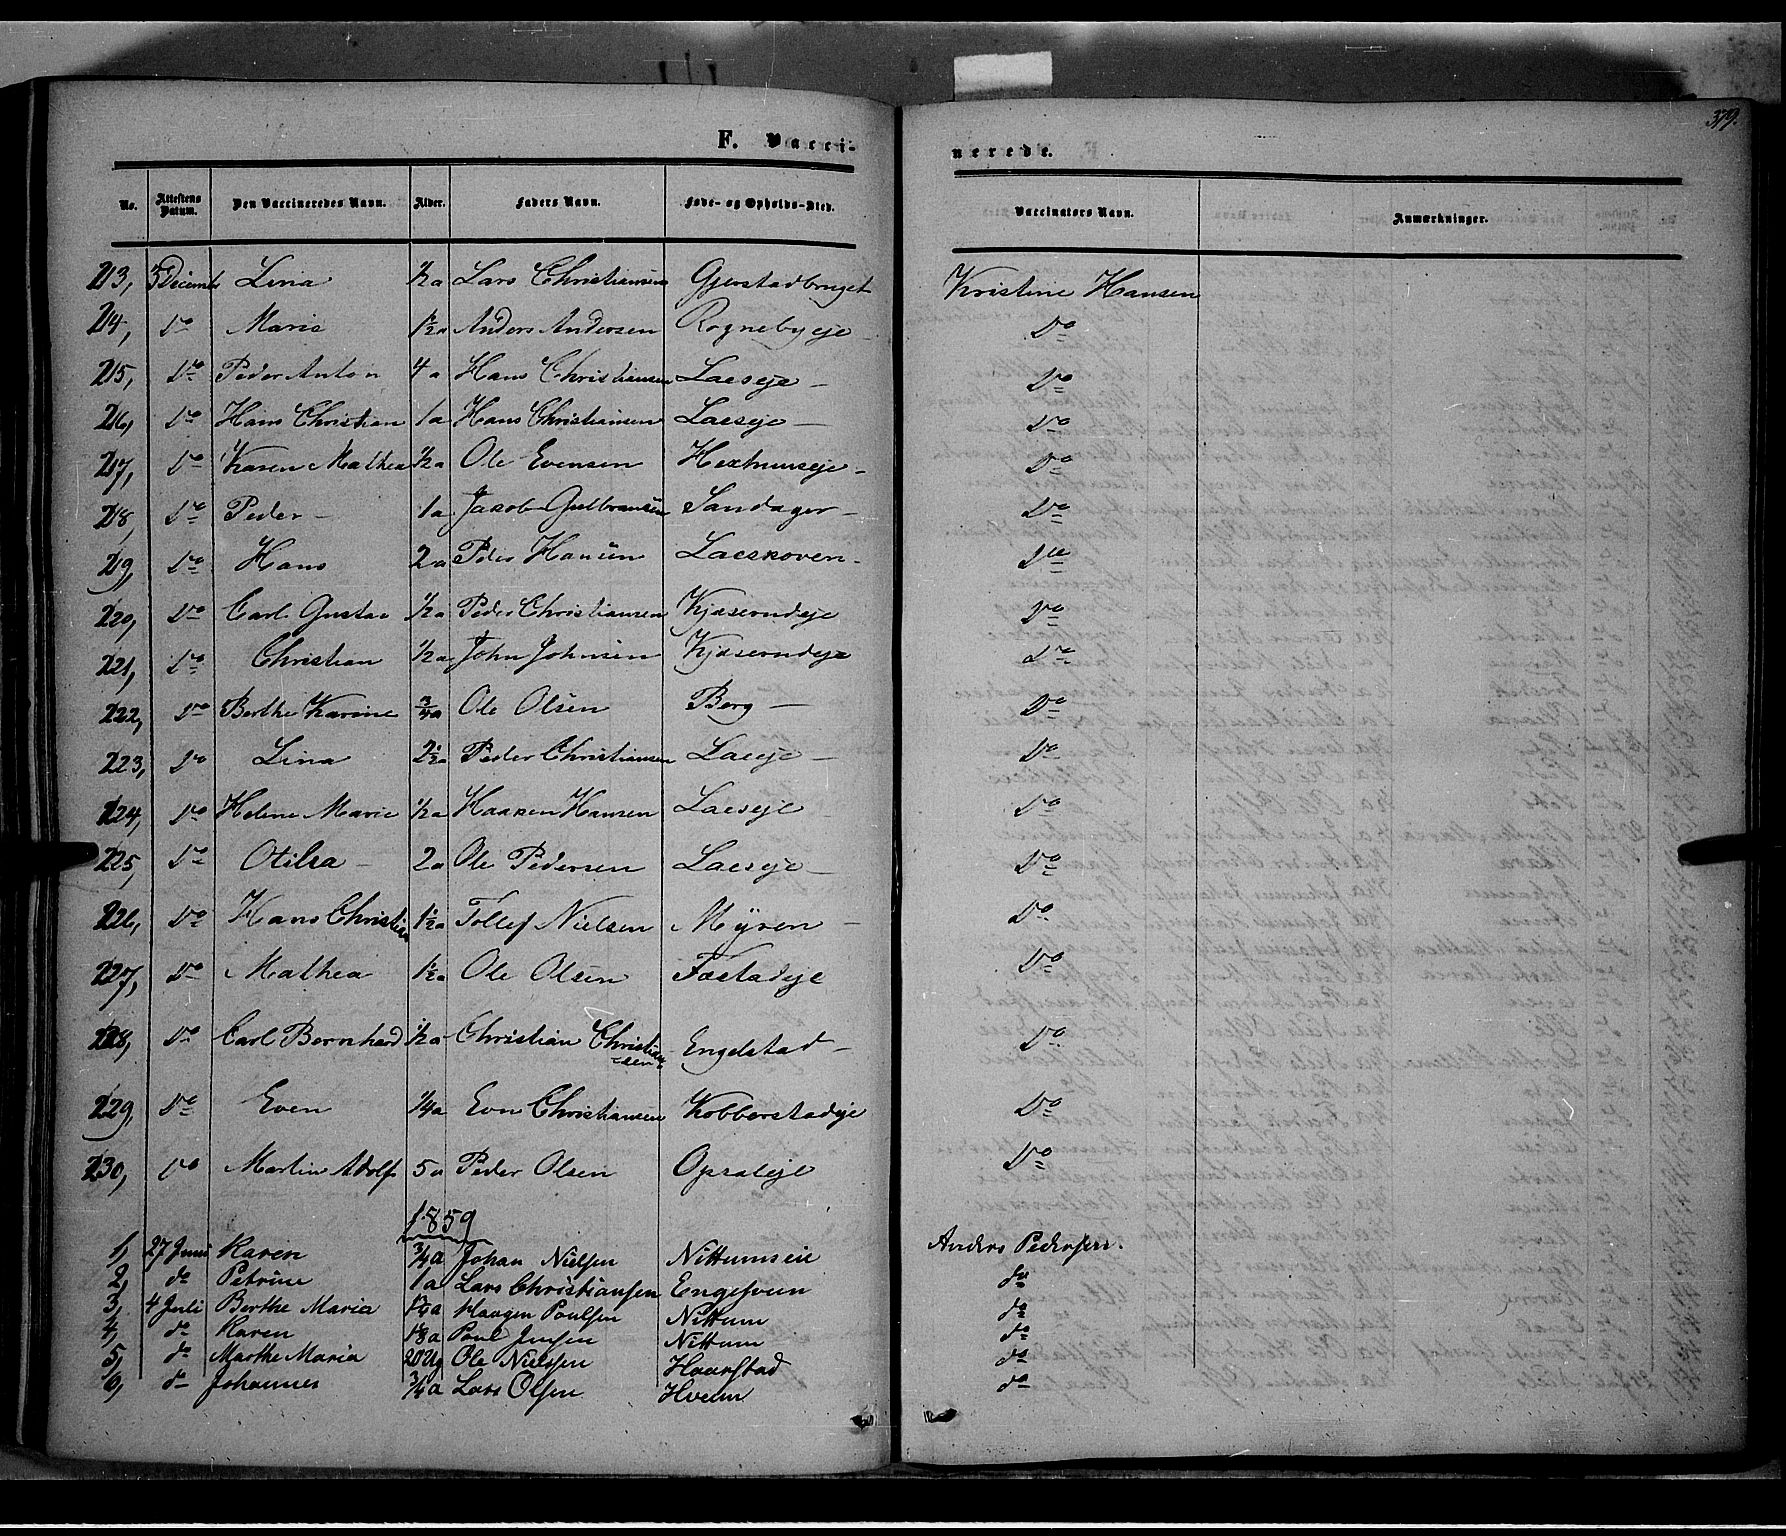 379.
F. Vacci-
nerede.
No. Attestens Datum. Den Vaccineredes Navn. Alder. Faders Navn. Føde- og Opholds-Sted. Vaccinators Navn. Anmærkninger.
213, 3 Decemb Lina ½a Lars Christiansen Gjerstadbruget Kristine Hansen
214, Do Marie 1½a Anders Andersen Rognebyeje Do
215, Do Peder Anton 4a Hans Christiansen Laeseje Do
216, Do Hans Christian 1a Hans Christiansen Laeseje Do
217, Do Karen Mathea ½a Ole Evensen Do
218, Do Peder 1a Jacob Gulbransen Sandager Do
219, Do Hans 2a Peder Hansen Laeskoven Do
220, Do Carl Gustav ½a Peder Christiansen Kjøserudeje Do
221, Do Christian ½a John Johnsen Kjøserudeje Do
222, Do Berthe Karine ¾a Ole Olsen Berg Do
223, Do Lina 2½a Peder Christiansen Laeseje Do
224, Do Helene Marie ½a Haaken Hansen Laeseje Do
225, Do Otilia 2a Ole Pedersen Laeseje Do
226, Do Hans Christian 1½a Tollef Nielsen Myren Do
227, Do Mathea 1½a Ole Olsen Do
228, Do Carl Bernhard ½a Christian Christiansen Engelstad Do
229, Do Even ¼a Even Christiansen Kobberstadeje Do
230, Do Martin Adolf 5a Peder Olsen Opsaleje Do
1859
1, 27 Juni Karen ¾a Johan Nielsen Nittumseie Anders Pedersen.
2, do Petrine 1a Lars Christiansen Engesveen do
3, 4 Juli Berthe Maria 1¼a Haagen Poulsen Nittum do
4, do Karen Poul Jensen Nittum do
5, do Marthe Maria 20 Ug Ole Nielsen Haarstad do
6, do Johannes ¾a Lars Olsen Hveem do